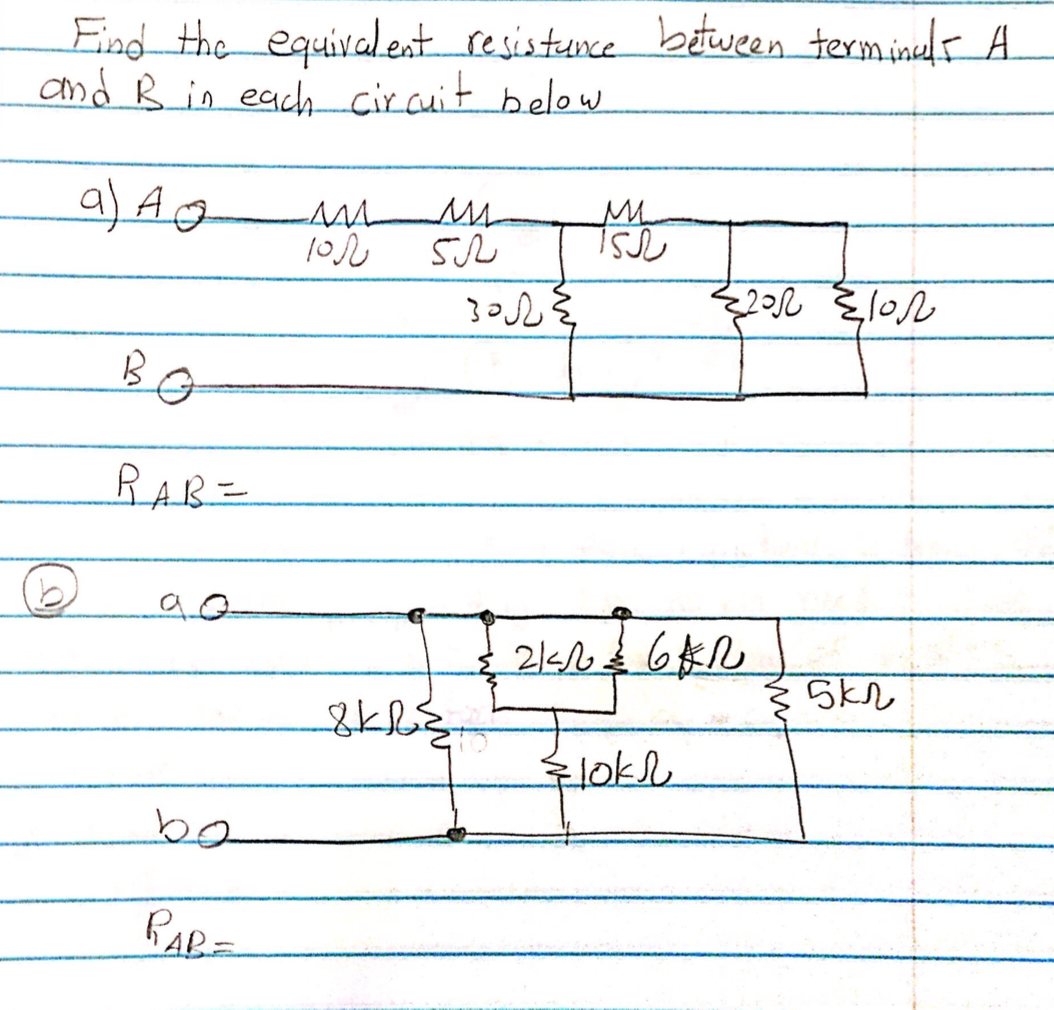 Find the equivalent resistance between terminals A
and B in each circuit below
a) A
10Ω 5Ω 15Ω
30Ω 20Ω 10Ω
B
R AB =
b a
2kΩ 6kΩ
5kΩ
8kΩ
10kΩ
b
RAB =